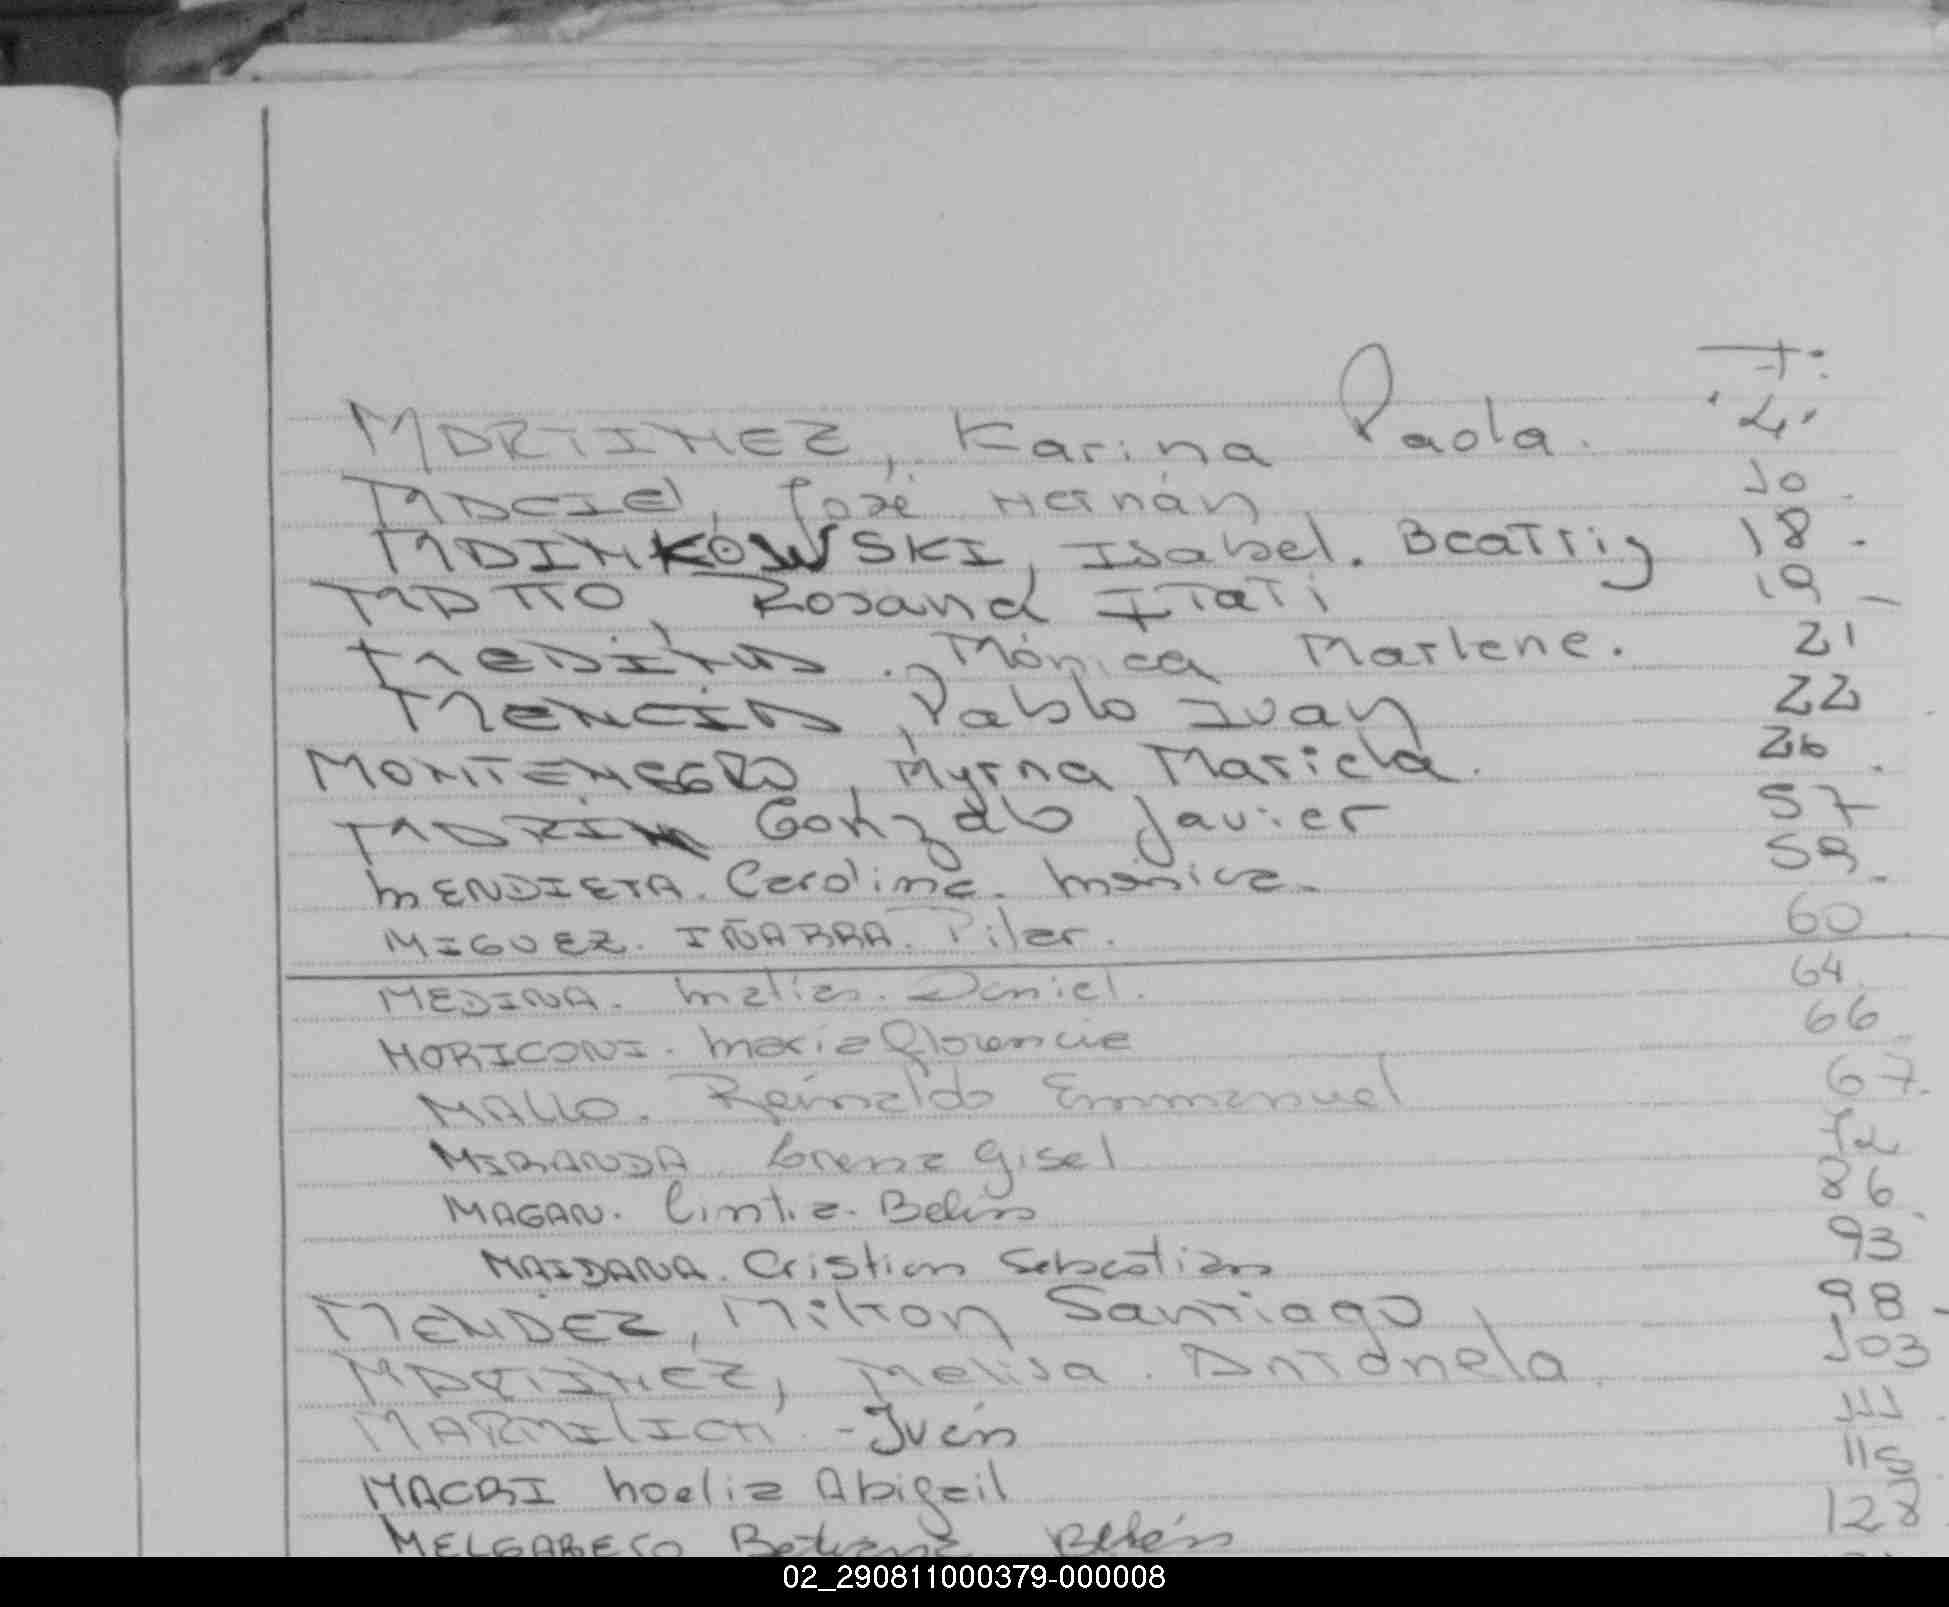 F:
MARTINEZ, Karina Paola. 4.
MACIEL, José Hernán 10.
MAINKOWSKI, Isabel. Beatriz 18.
MATTO, Rosana ITATI 19-
MEDINA. Mónica Marlene. 21
MENCIA, Pablo Ivan 22
MONTENEGRO, Myrna Mariela. 26.
MARIN Gonzalo Javier 57
MENDIETA. Carolina. Mónica. 59.
MIGUEZ. IÑARRA. Pilar. 60
MEDINA. Matias. Daniel. 64
MORICONI. Maria Florencia 66
MALLO. Reinaldo Emmanuel 67.
MIRANDA Lorena Gisel 72
MAGAN. Cintia. Belén 86
MAIDANA. Cristian Sebastian 93
MENDEZ, Milton Santiago 98-
MARTINEZ, Melisa. Antonela. 103
MARMILICH -Iván 111
MACRI Noelia Abigail 115
MELGAREJO Betiana Belén 128
02_290811000379-000008